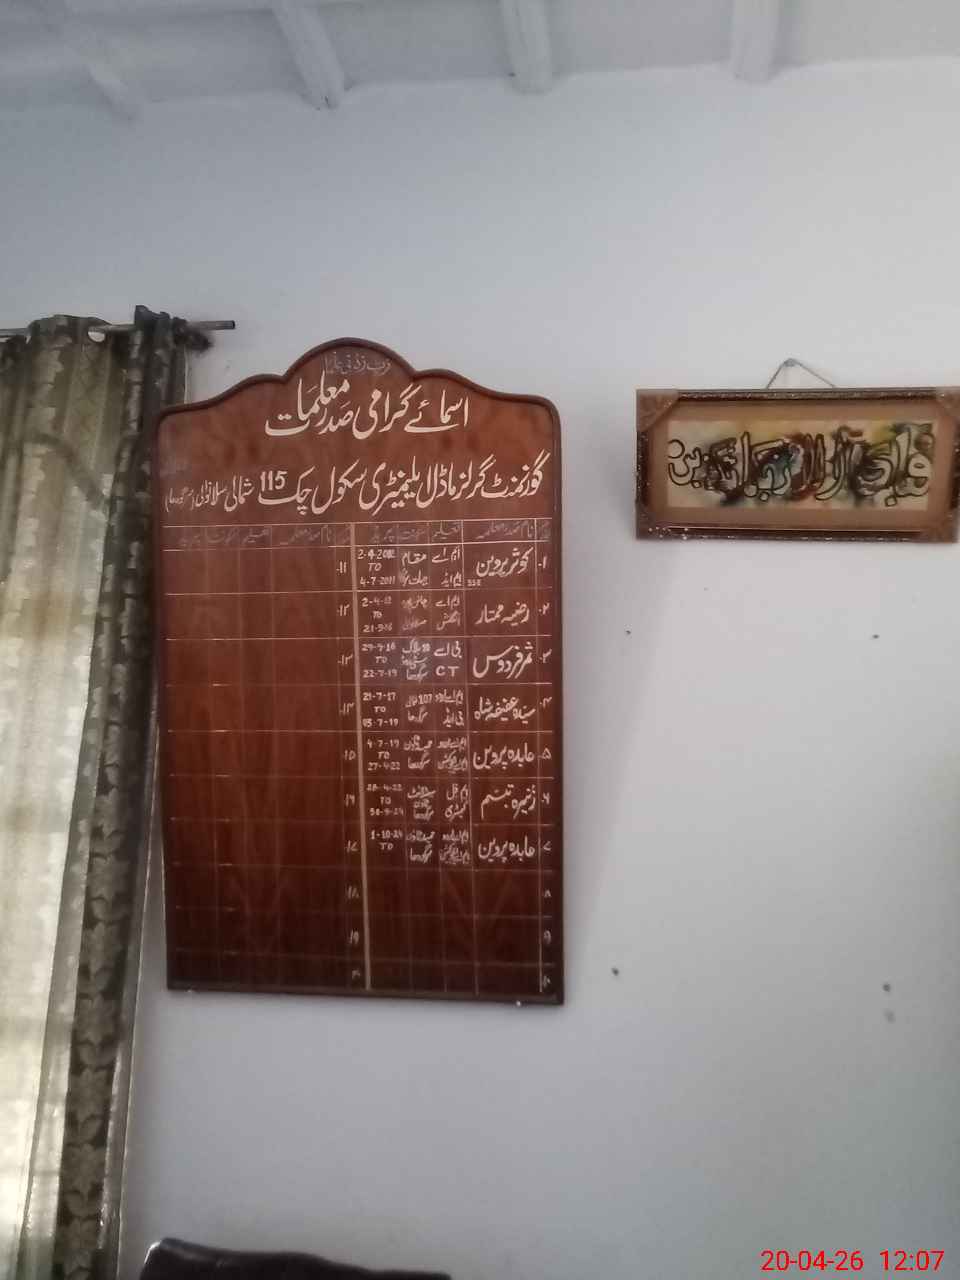 رب زدنی علما
اسمائے گرامی صدر معلمات
گورنمنٹ گرلز ماڈل ایلیمنٹری سکول چک 115 شمالی سلانوالی (سرگودھا)
نام صدر معلمہ تعلیم سکونت
نام صدر معلمہ تعلیم سکونت
۱۔ کوثر پروین SSE ایم اے ایم ایڈ مقام 4-7-2011 TO
۲۔ رضیہ ممتاز ایم اے انگلش 2-4-12 TO 21-9-16
۳۔ ثمر فردوس بی اے CT سرگودھا TO 22-7-19
۴۔ سیدہ عفیفہ شاہ بی ایڈ 107 شمالی سرگودھا 21-7-17 TO 03-7-19
۵۔ عابدہ پروین سرگودھا 4-7-19 TO 27-4-22
۶۔ زنیرہ تبسم ایم فل کیمسٹری سرگودھا 28-4-22 TO 30-9-24
۷۔ عابدہ پروین سرگودھا 1-10-24 TO
۸
۹
۱۰
۱۱
۱۲
۱۳
۱۴
۱۵
۱۶
۱۷
۱۸
۱۹
۲۰
فبای آلاء ربکما تکذبن
20-04-26 12:07